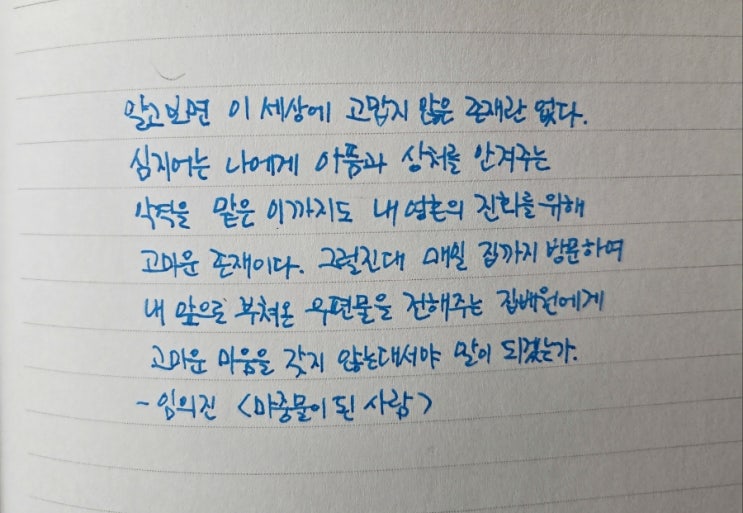 알고보면 이 세상에 고맙지 않은 존재란 없다.
심지어는 나에게 아픔과 상처를 안겨주는
악역을 맡은 이까지도 내 영혼의 진화를 위해
고마운 존재이다. 그럴진대 매일 집까지 방문하며
내 앞으로 부쳐온 우편물을 전해주는 집배원에게
고마운 마음을 갖지 않는대서야 말이 되겠는가.
- 임의진 <마중물이 된 사람>